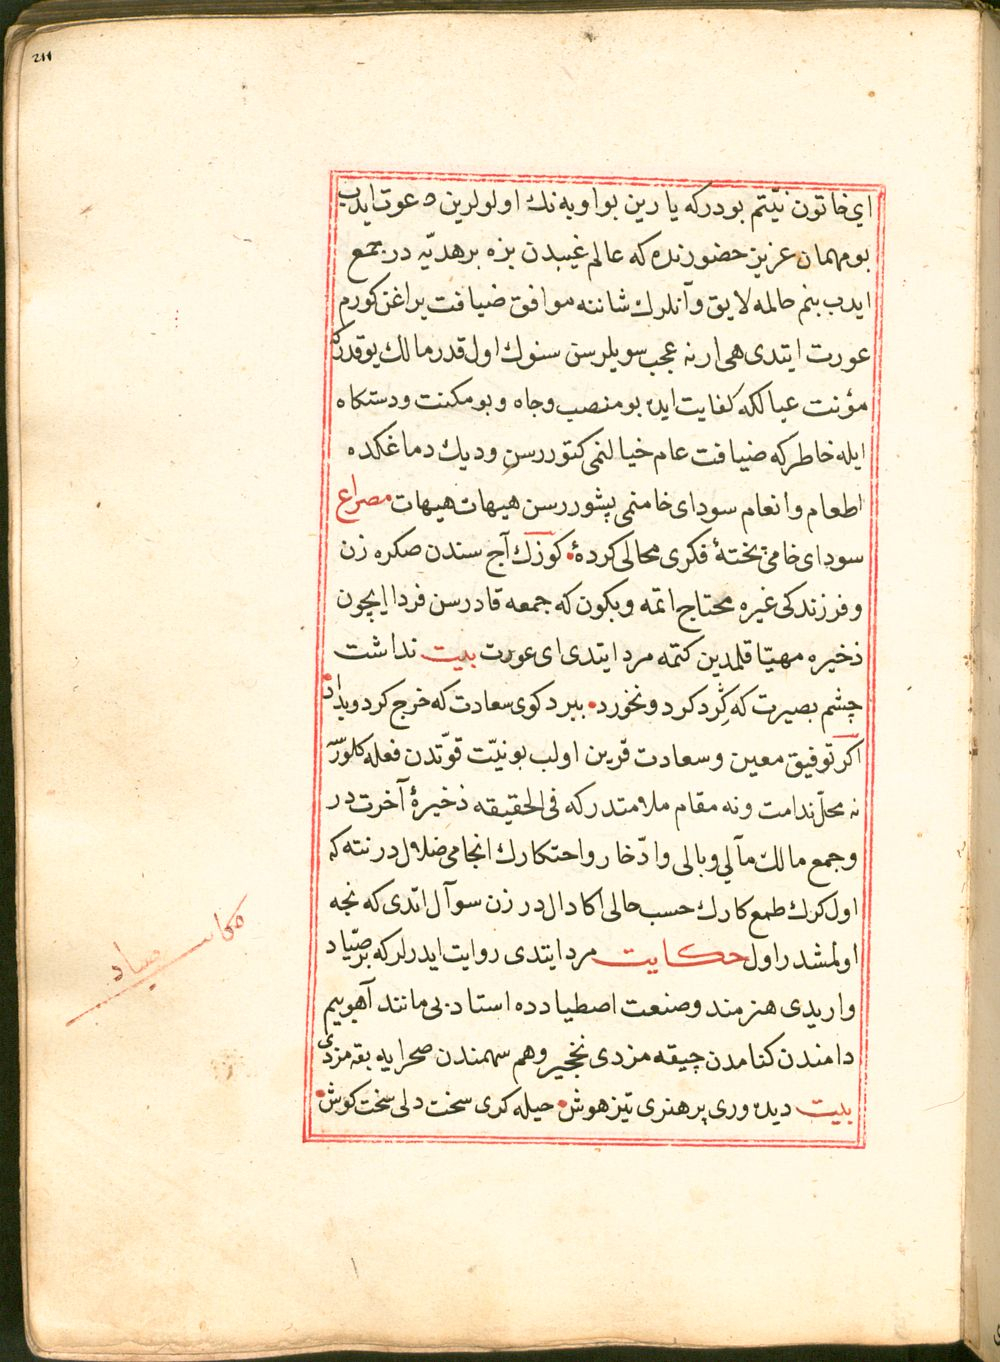 ٢١١
ای خاتون نیّتم بودرکه یارین بو اوبه نك اولولرین دعوت ایدب
بومهمان عزیز حضورنده که عالم غیبدن بزه برهدیّه در جمع
ایدب بنم حالمه لایق و آنلرك شاننه موافق ضیافت یراغن کورم
عورت ایتدی هی ار نه عجب سویلرسن سنوك اول قدر مالك یوقدرکه
مؤنت عیالکه کفایت ایده بو منصب و جاه و بو مکنت و دستکاه
ایله خاطرکه ضیافت عام خیالنمی کتوررسن و دیك دماغکده
اطعام و انعام سودای خامنمی پشوررسن هیهات هیهات مصراع
سودای خامی پختهٔ فکری محالی کردهٔ کوزك آج سندن صکره زن
و فرزندکی غیره محتاج اتمه و بکون که جمعه قادرسن فردا ایچون
ذخیره مهیّا قلمدین کتمه مرد ایتدی ای عورت بیت نداشت
چشم بصیرت که کِرد کرد و نخورد ببرد کوی سعادت که خرج کرد و بداد
اکر توفیق معین و سعادت قرین اولب بو نیّت قوّتدن فعله کلورسه
نه محلّ ندامت و نه مقام ملامتدر که فی الحقیقه ذخیرهٔ آخرت در
و جمع مالك مآلی وبالی و ادّخار و احتکارك انجامی ضلال در نته که
اول کرك طمع کارك حسب حالی اکا دال در زن سوآل اتدی که نجه
اولمشدر اول حکایت مرد ایتدی روایت ایدرلر که بر صیّاد
واریدی هنرمند و صنعت اصطیادده استاد بی مانند آهو بیم
دامندن کنامدن چیقه مزدی نخجیر وهم سهمندن صحرایه بقه مزدی
بیت دیده وری پر هنری تیز هوش حیله کری سخت دلی سخت کوش
حکایت صیاد